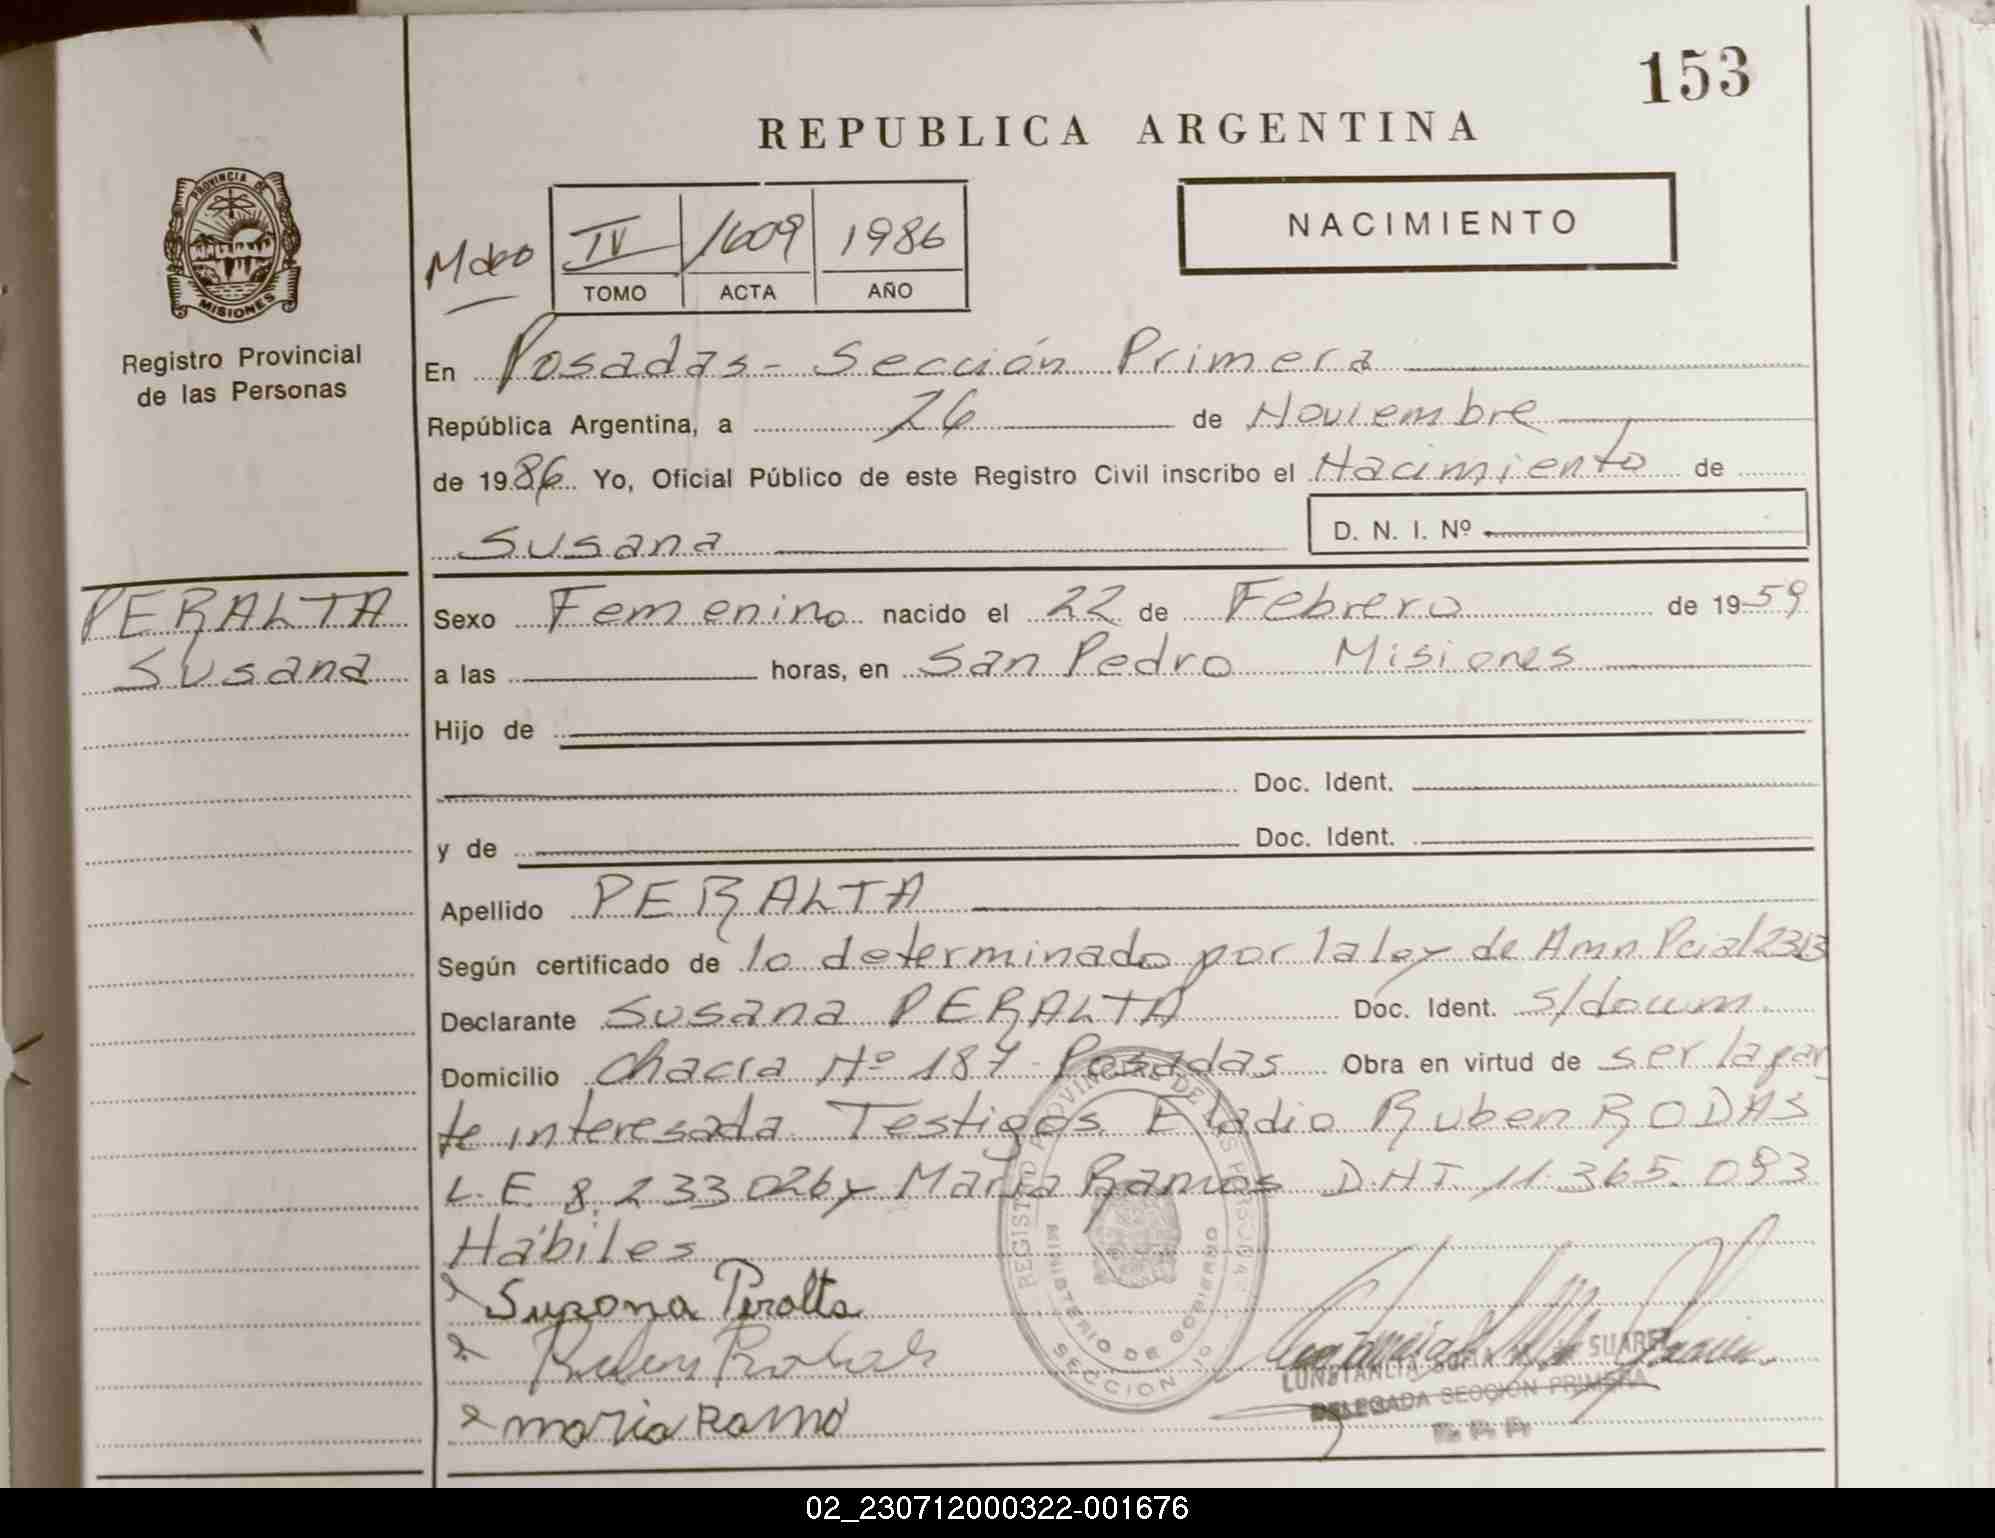 153
REPUBLICA ARGENTINA
PROVINCIA DE
MISIONES
Registro Provincial
de las Personas
NACIMIENTO
IV 1609 1986
TOMO ACTA AÑO
En Posadas - Sección Primera
República Argentina, a 26 de Noviembre
de 1986 Yo, Oficial Público de este Registro Civil inscribo el Nacimiento de
Susana D. N. I. Nº
PERALTA
Susana
Sexo Femenino nacido el 22 de Febrero de 1959
a las horas, en San Pedro Misiones
Hijo de
Doc. Ident.
y de Doc. Ident.
Apellido PERALTA
Según certificado de lo determinado por la ley de Amn Pcial 2313
Declarante Susana PERALTA Doc. Ident. s/docum.
Domicilio Chacra Nº 187 - Posadas Obra en virtud de ser la par
te interesada. Testigos Eladio Ruben RODAS
L.E 8.233026 y Maria Ramos DNI 11.365.093
Hábiles
Susana Peralta
maria Ramo
REGISTRO PROVINCIAL DE LAS PERSONAS
MINISTERIO DE GOBIERNO
SECCION 1º
SUAREZ
DELEGADA SECCION PRIMERA
02_230712000322-001676